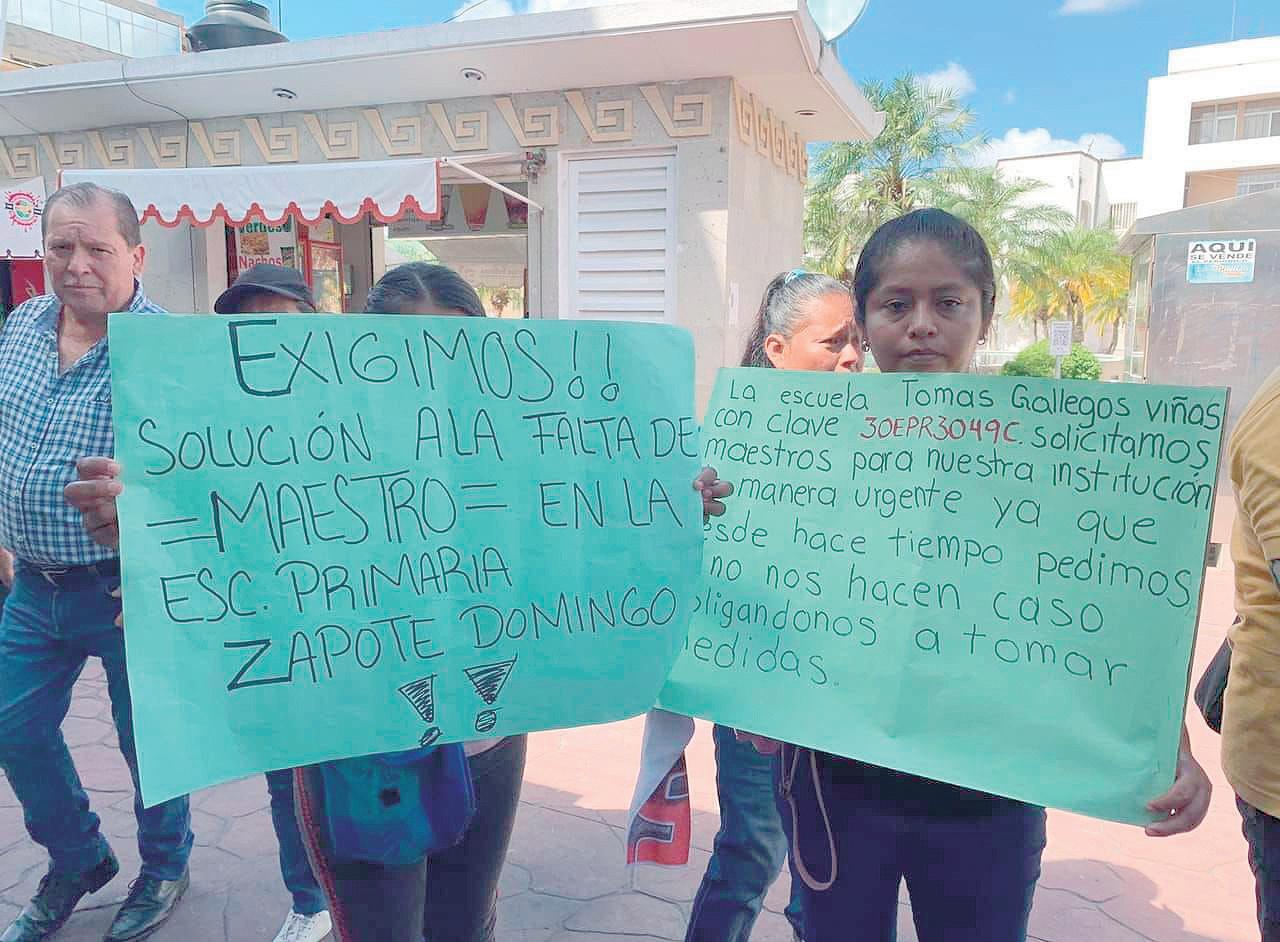 EXIGIMOS!!
SOLUCIÓN ALA FALTA DE
=MAESTRO= EN LA
ESC. PRIMARIA
ZAPOTE DOMINGO
!!
La escuela Tomas Gallegos Viñas
con clave 30EPR3049C. solicitamos
maestros para nuestra institución
manera urgente ya que
esde hace tiempo pedimos
no nos hacen caso
ligandonos a tomar
edidas.
AQUI
SE VENDE
Nachos